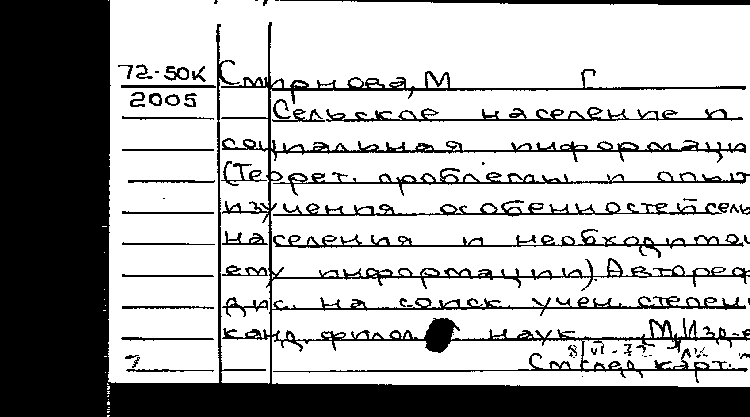 72-50к Смирнова, М Г
2005 Сельское население и
социальная информаци
(Теорет. проблемы и опыт
изучения особенностей сель
населения и необходимой
ему информации). Автореф
дис. на соиск. учен. степени
канд. филол наук М, Изд-в
8/VI-72
См след карт.